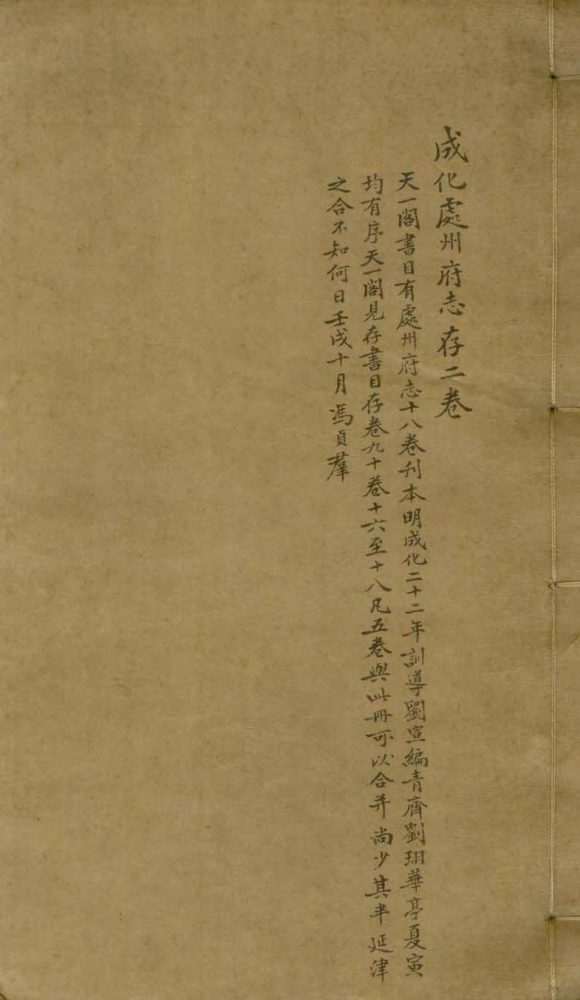 成化處州府志存二卷
天一閣書目有處州府志十八卷刋本明成化二十二年訓導劉宣編青齊劉珝華亭夏寅
均有序天一閣見存書目存卷九十卷十六至十八凡五卷與此冊可以合并尚少其半延津
之合不知何日壬戌十月馮貞羣